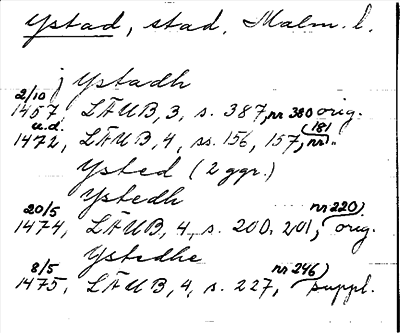 Ystad, stad, Malm. l.
j Ystadh
2/10 1457 LÄUB, 3, s. 387, nr 380 orig.
u.d. 1472, LÄUB, 4, ss. 156, 157, nr 181 "
Ysted (2 ggr.)
Ystedh
20/5 1474, LÄUB, 4, s. 200, 201, nr 220) orig.
Ystedhe
8/5 1475, LÄUB, 4, s. 227, nr 246) suppl.